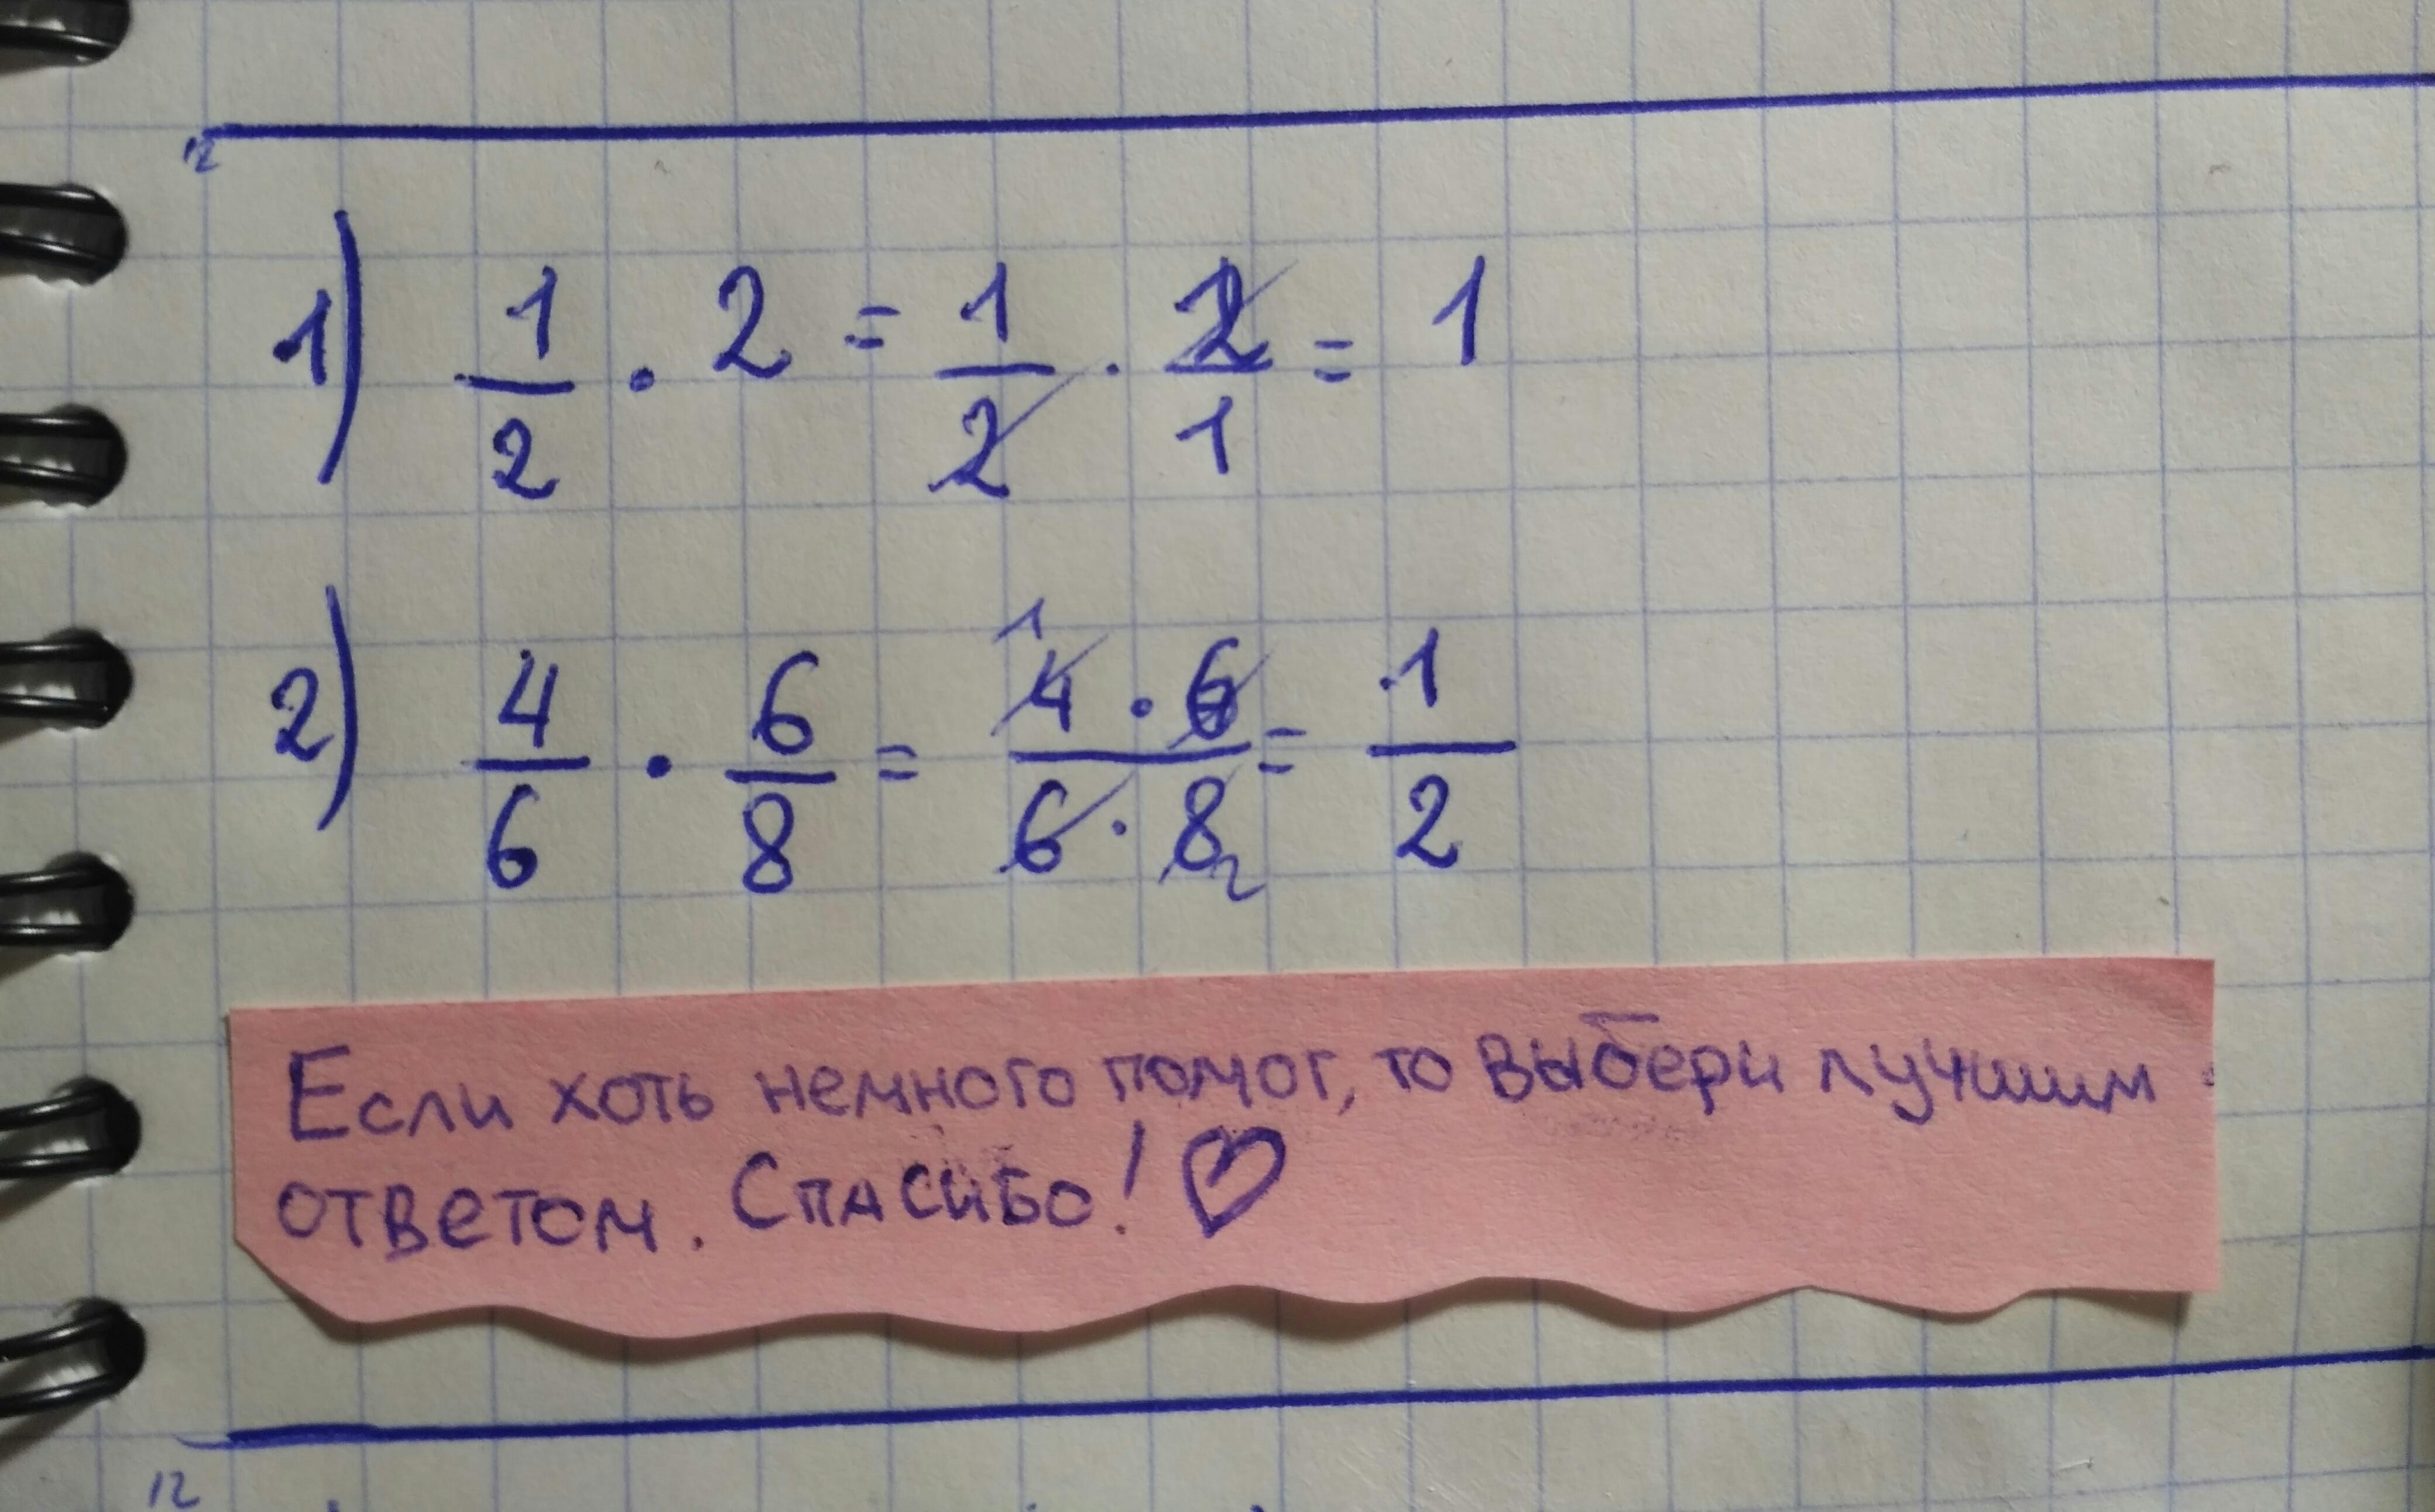 12
1) 1/2 · 2 = 1/2 · 2/1 = 1
2) 4/6 · 6/8 = 1 4 · 6 / 6 · 8 2 = 1/2
Если хоть немного помог, то выбери лучшим
ответом. Спасибо! ♡
12